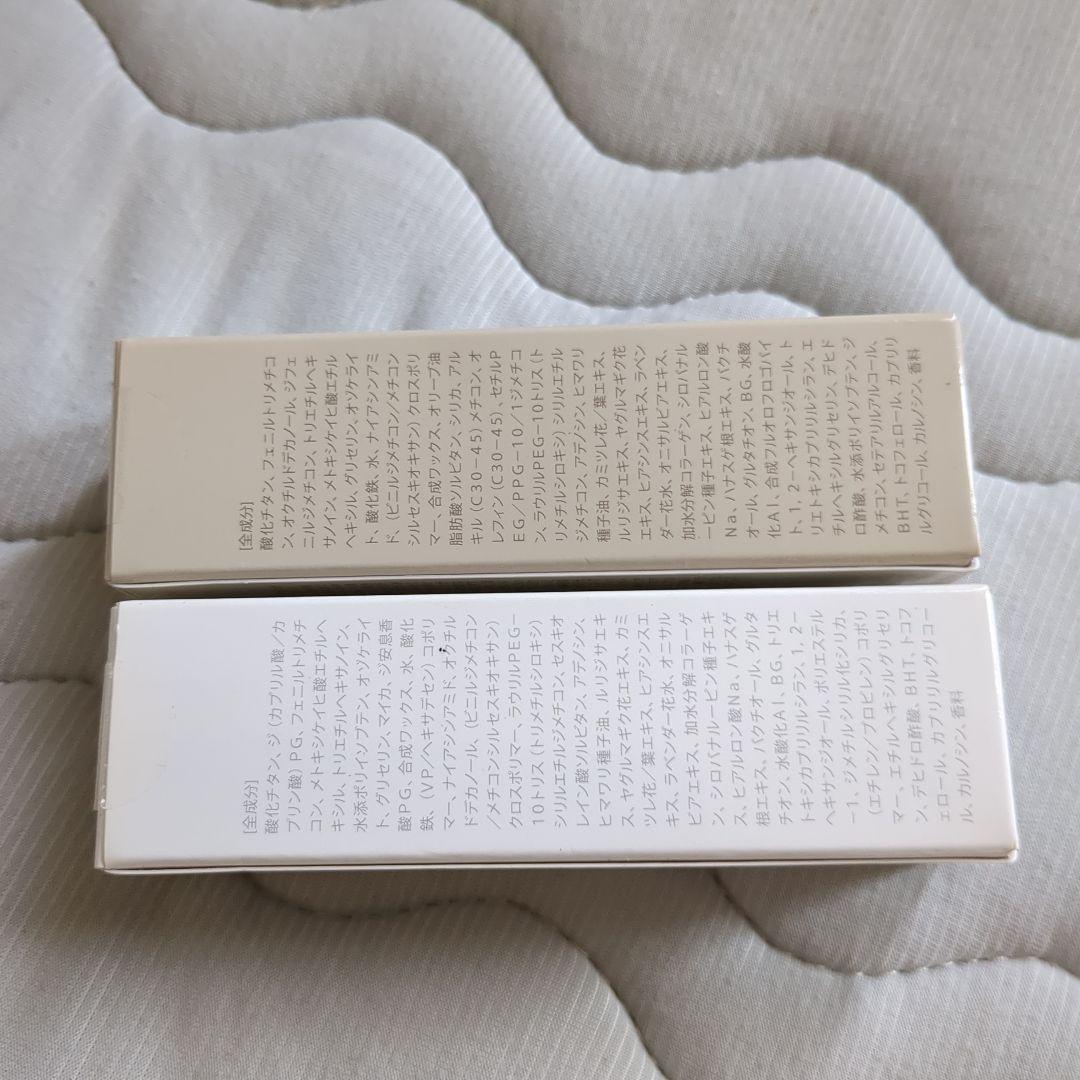 [全成分]
酸化チタン、フェニルトリメチコ
ン、オクチルドデカノール、ジフェ
ニルジメチコン、トリエチルヘキ
サノイン、メトキシケイヒ酸エチル
ヘキシル、グリセリン、オゾケライ
ト、酸化鉄、水、ナイアシンアミ
ド、(ビニルジメチコン/メチコン
シルセスキオキサン)クロスポリ
マー、合成ワックス、オリーブ油
脂肪酸ソルビタン、シリカ、アル
キル(C30-45)メチコン、オ
レフィン(C30-45)、セチルP
EG/PPG-10/1ジメチコ
ン、ラウリルPEG-10トリス(ト
リメチルシロキシ)シリルエチル
ジメチコン、アデノシン、ヒマワリ
種子油、カミツレ花/葉エキス、
ルリジサエキス、ヤグルマギク花
エキス、ヒアシンスエキス、ラベン
ダー花水、オニサルビアエキス、
加水分解コラーゲン、シロバナル
ーピン種子エキス、ヒアルロン酸
Na、ハナスゲ根エキス、バクチ
オール、グルタチオン、BG、水酸
化Al、合成フルオロフロゴパイ
ト、1,2-ヘキサンジオール、ト
リエトキシカプリリルシラン、エ
チルヘキシルグリセリン、デヒド
ロ酢酸、水添ポリイソブテン、ジ
メチコン、セテアリルアルコール、
BHT、トコフェロール、カプリリ
ルグリコール、カルノシン、香料
[全成分]
酸化チタン、ジ(カプリル酸/カ
プリン酸)PG、フェニルトリメチ
コン、メトキシケイヒ酸エチルヘ
キシル、トリエチルヘキサノイン、
水添ポリイソブテン、オゾケライ
ト、グリセリン、マイカ、ジ安息香
酸PG、合成ワックス、水、酸化
鉄、(VP/ヘキサデセン)コポリ
マー、ナイアシンアミド、オクチル
ドデカノール、(ビニルジメチコン
/メチコンシルセスキオキサン)
クロスポリマー、ラウリルPEG-
10トリス(トリメチルシロキシ)
シリルエチルジメチコン、セスキオ
レイン酸ソルビタン、アデノシン、
ヒマワリ種子油、ルリジサエキ
ス、ヤグルマギク花エキス、カミ
ツレ花/葉エキス、ヒアシンスエ
キス、ラベンダー花水、オニサル
ビアエキス、加水分解コラーゲ
ン、シロバナルーピン種子エキ
ス、ヒアルロン酸Na、ハナスゲ
根エキス、バクチオール、グルタ
チオン、水酸化Al、BG、トリエ
トキシカプリリルシラン、1,2-
ヘキサンジオール、ポリエステル
-1、ジメチルシリル化シリカ、
(エチレン/プロピレン)コポリ
マー、エチルヘキシルグリセリ
ン、デヒドロ酢酸、BHT、トコフ
ェロール、カプリリルグリコー
ル、カルノシン、香料